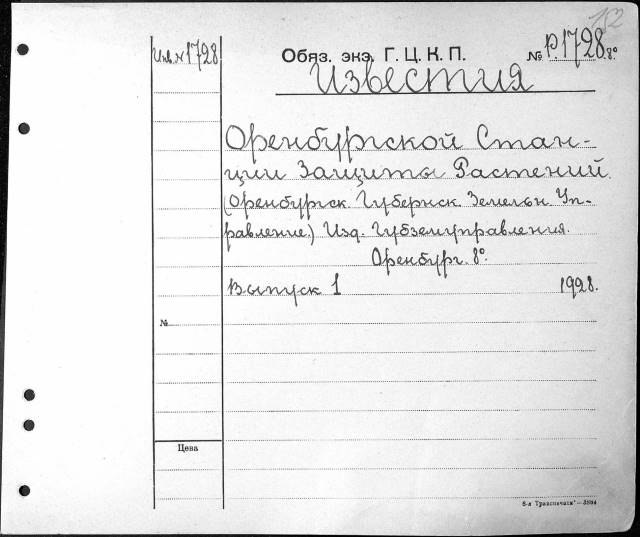 152
Инв. № 1728
Обяз. экз. Г. Ц. К. П. № Р.1728. 8°
Известия
Оренбургской Стан-
ции Защиты Растений.
(Оренбургск. Губернск. Земельн. Уп-
равление.) Изд. Губземуправления.
Оренбург. 8°.
Выпуск 1 1928.
№
Цена
8-я Транспечать—3894